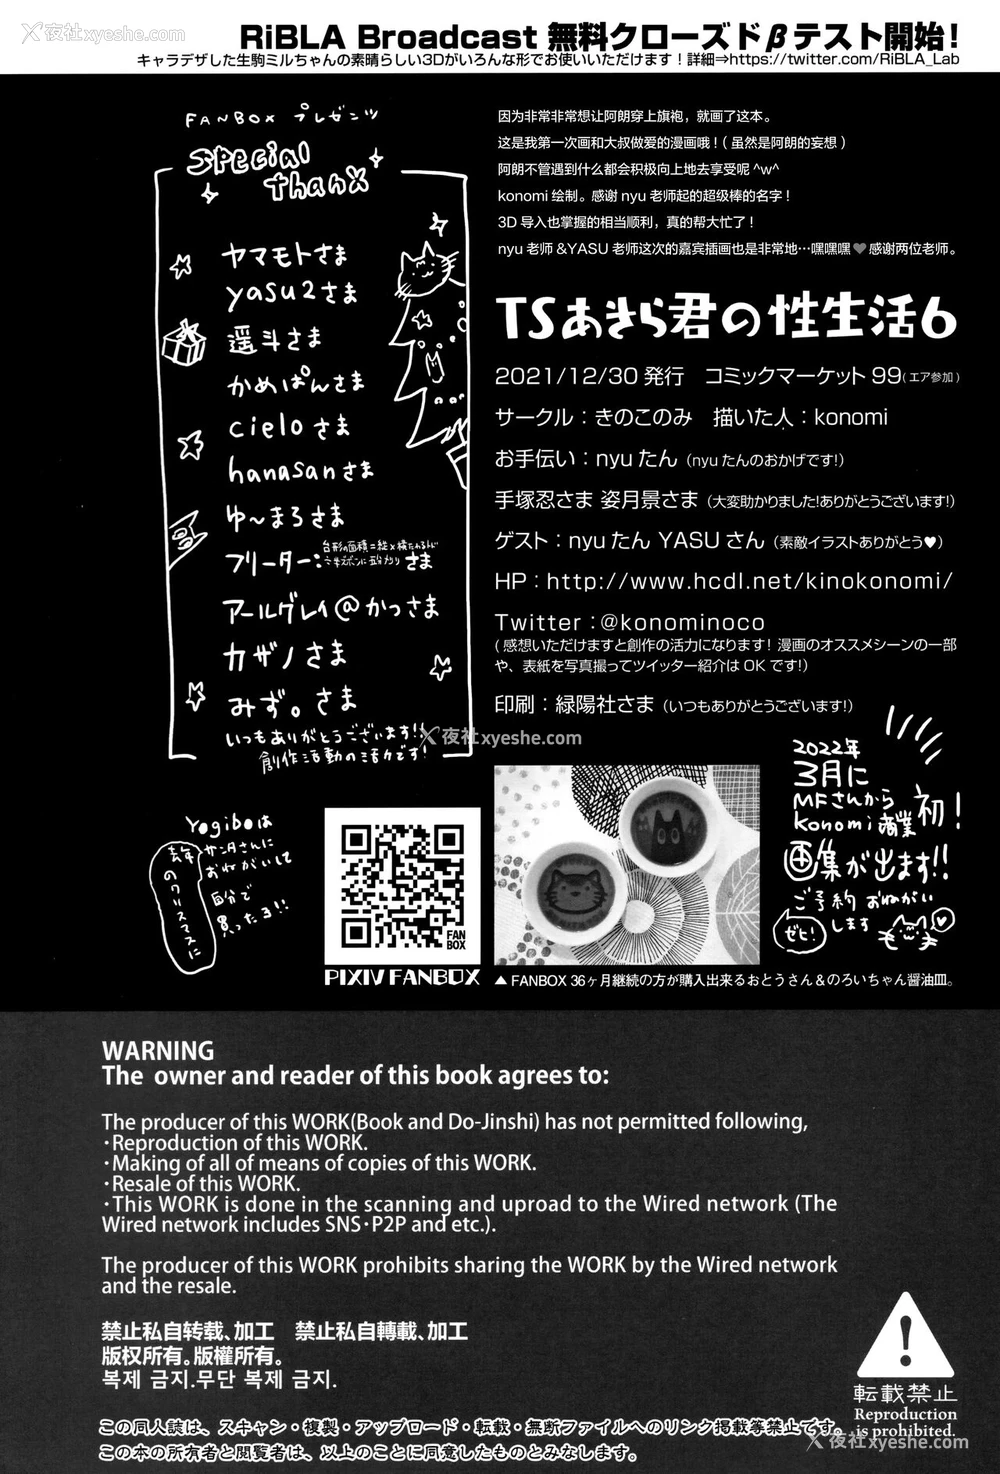 夜社xyeshe.com
RiBLA Broadcast 無料クローズドβテスト開始！
キャラデザした生駒ミルちゃんの素晴らしい3Dがいろんな形でお使いいただけます！詳細⇒https://twitter.com/RiBLA_Lab
FANBOX プレゼンツ
special
thanx
ヤマモトさま
yasu2さま
遥斗さま
かめぱんさま
cieloさま
hanasanさま
ゆ〜まろさま
フリーター:
さま
アールグレイ@かっさま
カザノさま
みず。さま
いつもありがとうございます!!
創作活動の活力です!
因为非常非常想让阿朗穿上旗袍，就画了这本。
这是我第一次画和大叔做爱的漫画哦！（虽然是阿朗的妄想）
阿朗不管遇到什么都会积极向上地去享受呢 ^w^
konomi 绘制。感谢 nyu 老师起的超级棒的名字！
3D 导入也掌握的相当顺利，真的帮大忙了！
nyu 老师 &YASU 老师这次的嘉宾插画也是非常地…嘿嘿嘿♥感谢两位老师。
TSあきら君の性生活6
2021/12/30 発行　コミックマーケット 99（エア参加）
サークル：きのこのみ　描いた人：konomi
お手伝い：nyuたん（nyuたんのおかげです!）
手塚忍さま 姿月景さま（大変助かりました!ありがとうございます!）
ゲスト：nyuたん YASUさん（素敵イラストありがとう♥）
HP：http://www.hcdl.net/kinokonomi/
Twitter：@konominoco
(感想いただけますと創作の活力になります！漫画のオススメシーンの一部
や、表紙を写真撮ってツイッター紹介は OK です!)
印刷：緑陽社さま（いつもありがとうございます!）
夜社xyeshe.com
Yogiboは
サンタさんに
おねがいして
自分で
買ったヨ!!
去年
のクリスマスに
FAN
BOX
PIXIV FANBOX
▲ FANBOX 36ヶ月継続の方が購入出来るおとうさん＆のろいちゃん醤油皿。
2022年
3月に
MFさんから
konomi商業初!
画集が出ます!!
ご予約 おねがい
します
ゼヒ!
WARNING
The owner and reader of this book agrees to:
The producer of this WORK(Book and Do-Jinshi) has not permitted following,
・Reproduction of this WORK.
・Making of all of means of copies of this WORK.
・Resale of this WORK.
・This WORK is done in the scanning and uproad to the Wired network (The
Wired network includes SNS・P2P and etc.).
The producer of this WORK prohibits sharing the WORK by the Wired network
and the resale.
禁止私自转载、加工　禁止私自轉載、加工
版权所有。版權所有。
복제 금지.무단 복제 금지.
この同人誌は、スキャン・複製・アップロード・転載・無断ファイルへのリンク掲載等禁止です。
この本の所有者と閲覧者は、以上のことに同意したものとみなします。
転載禁止
Reproduction
is prohibited.
夜社xyeshe.com